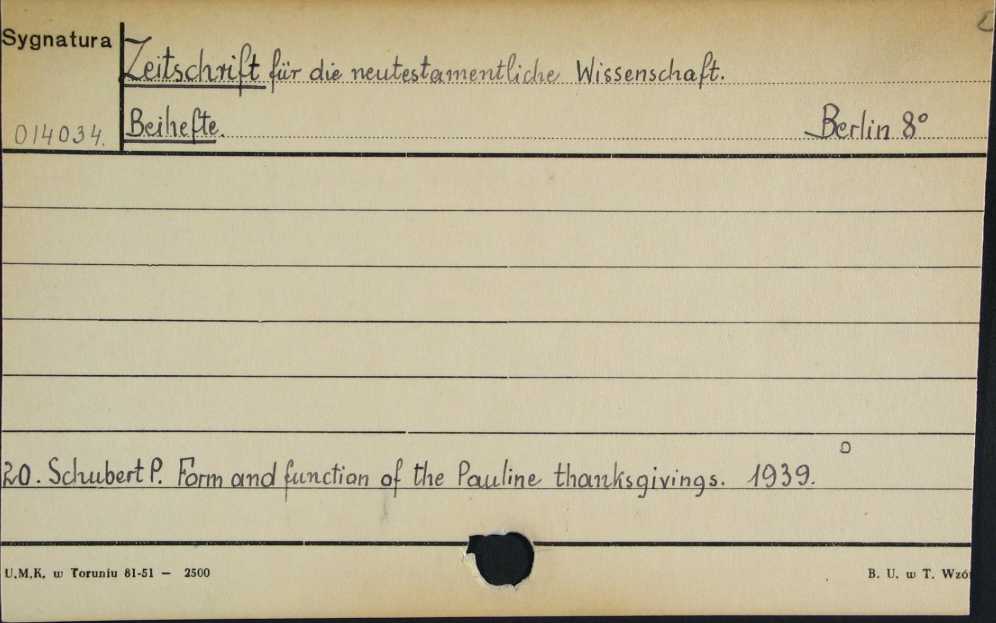 Sygnatura
Zeitschrift für die neutestamentliche Wissenschaft.
014034.
Beihefte.
Berlin 8°
20. Schubert P. Form and function of the Pauline thanksgivings. 1939.
U.M.K. w Toruniu 81-51 — 2500
B. U. w T. Wzó